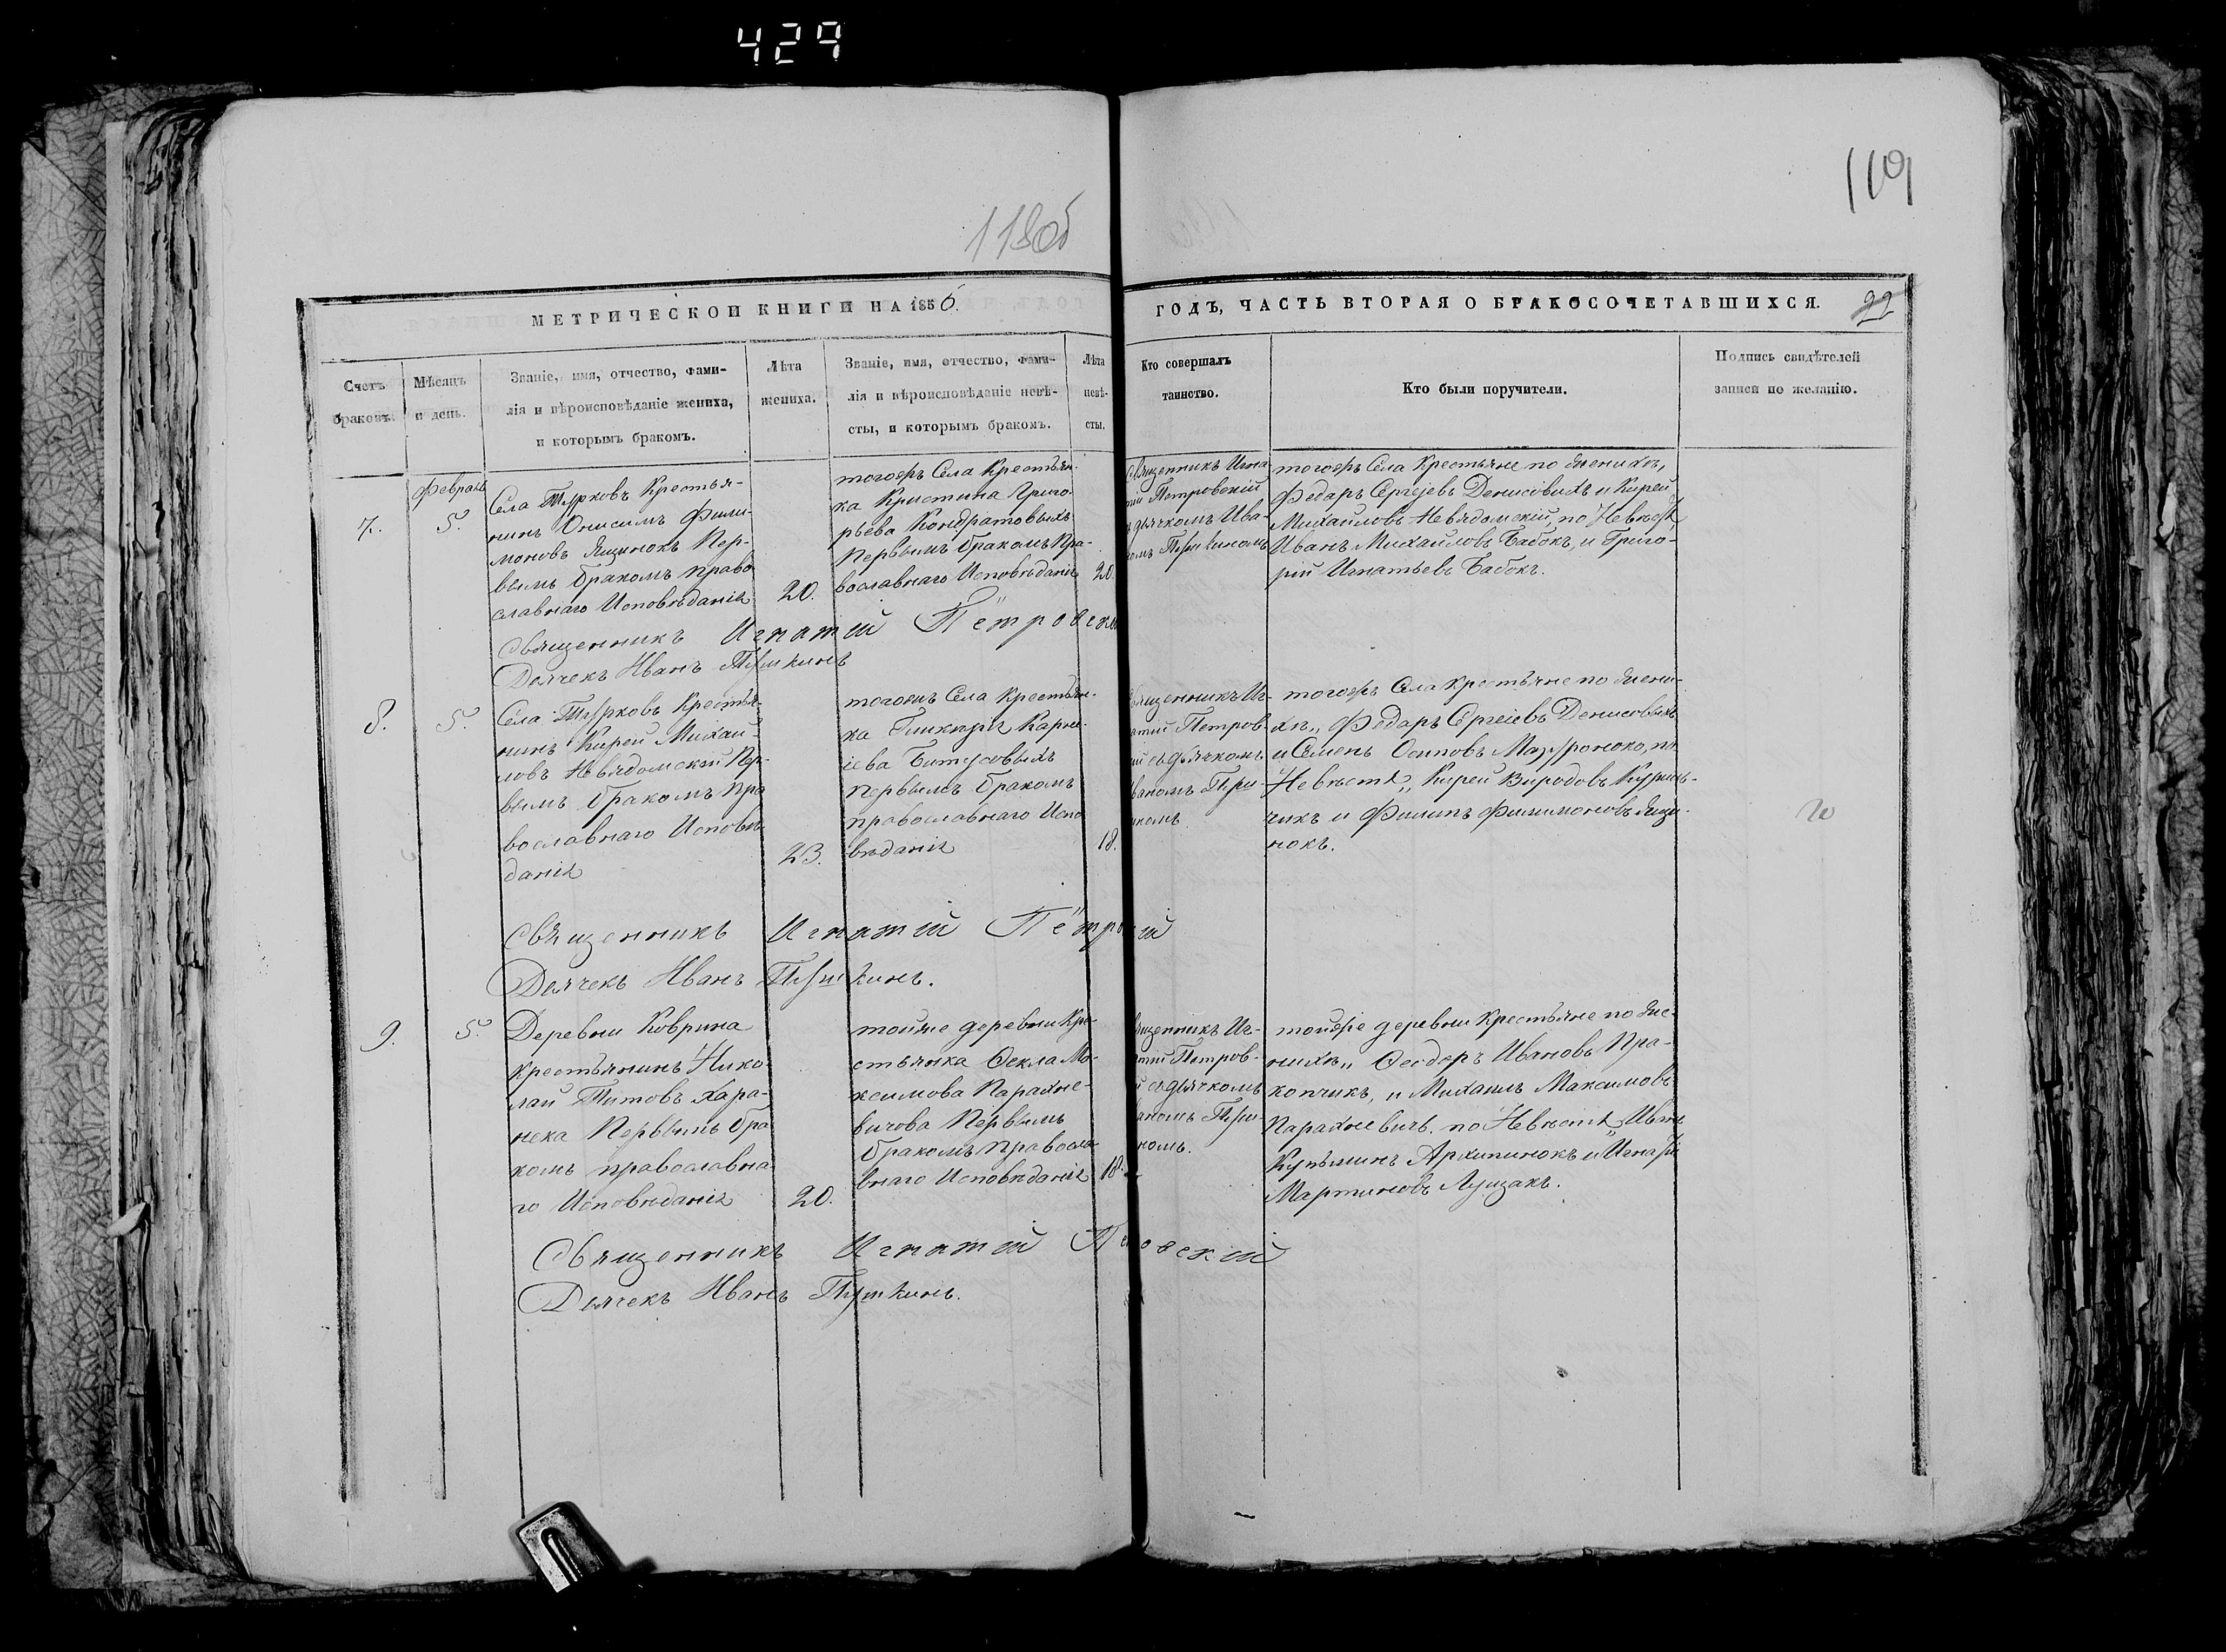 429
119
118об
МЕТРИЧЕСКОЙ КНИГИ НА 1856.
ГОДЪ, ЧАСТЬ ВТОРАЯ О БРАКОСОЧЕТАВШИХСЯ.
22
Счетъ
браковъ.
Мѣсяцъ
и день.
Званіе, имя, отчество, фами-
лія и вѣроисповѣданіе жениха,
и которымъ бракомъ.
Лѣта
жениха.
Званіе, имя, отчество, фами-
лія и вѣроисповѣданіе невѣ-
сты, и которымъ бракомъ.
Лѣта
невѣ-
сты.
Кто совершалъ
таинство.
Кто были поручители.
Подпись свидѣтелей
записи по желанію.
7.
Февраль
5.
Села Турковъ Крестья-
нинъ Онисимъ Фили-
моновъ Ящинюкъ Пер-
вымъ бракомъ право
славнаго Исповѣданія
20.
тогожъ Села Крестьян-
ка Кристина Григо-
рьева Кондратовыхъ
Первымъ бракомъ Пра-
вославнаго Исповѣданія
20.
Священникъ Игна
тій Петровскій
дьячкомъ Ива-
номъ Пушкиномъ
тогожъ Села Крестьяне по женихѣ,
Федаръ Сергѣевъ Денисовыхъ и Кирей
Михайловъ Невядомскій, по Невѣстѣ,
Иванъ Михайловъ Бабокъ, и Григо-
рій Игнатьевъ Бабокъ.
Священникъ Игнатій Петровскій
Деячекъ Иванъ Пушкинъ
8.
5.
Села Турковъ Крестья-
нинъ Кирей Михай-
ловъ Невядомскій Пер-
вымъ бракомъ Пра
вославнаго Исповѣ
данія
23.
тогожъ Села Крестьян-
ка Гликерія Карни-
іева
первымъ бракомъ
православнаго Испо
вѣданія
18.
Священникъ Иг-
натій Петров-
ій съ дьячкомъ
Иваномъ Пуш-
киномъ
тогожъ Села Крестьяне по жени-
хѣ,, Федаръ Сергіевъ Денисовыхъ
и Семенъ Осиповъ по
Невѣстѣ,, Кирей
чикъ и Филипъ Филимоновъ Ящи-
нюкъ.
20
Священникъ Игнатій Петро ій
Деячекъ Иванъ Пушкинъ.
9.
5.
Деревни Коврина
крестьянинъ Нико-
лай Титовъ Хара-
нека Первымъ бра
комъ православна-
го Исповѣданія
20.
тойже деревни Кре-
стьянка Ѳекла Ма-
ксимова Парахне-
вичова Первымъ
бракомъ Правосла-
внаго Исповѣданія
18.
Священникъ Иг-
натій Петров-
й съ дьячкомъ
Иваномъ Пуш-
киномъ.
тойже деревни Крестьяне по же-
нихѣ,, Ѳеодоръ Ивановъ Пра-
копчикъ, и Михаилъ Максимовъ
Парахневичъ. по Невѣстѣ,, Иванъ
Кузьминъ Архипинюкъ и Игнатій
Мартиновъ Лущакъ.
Священникъ Игнатій Пе овскій
Деячекъ Иванъ Пушкинъ.